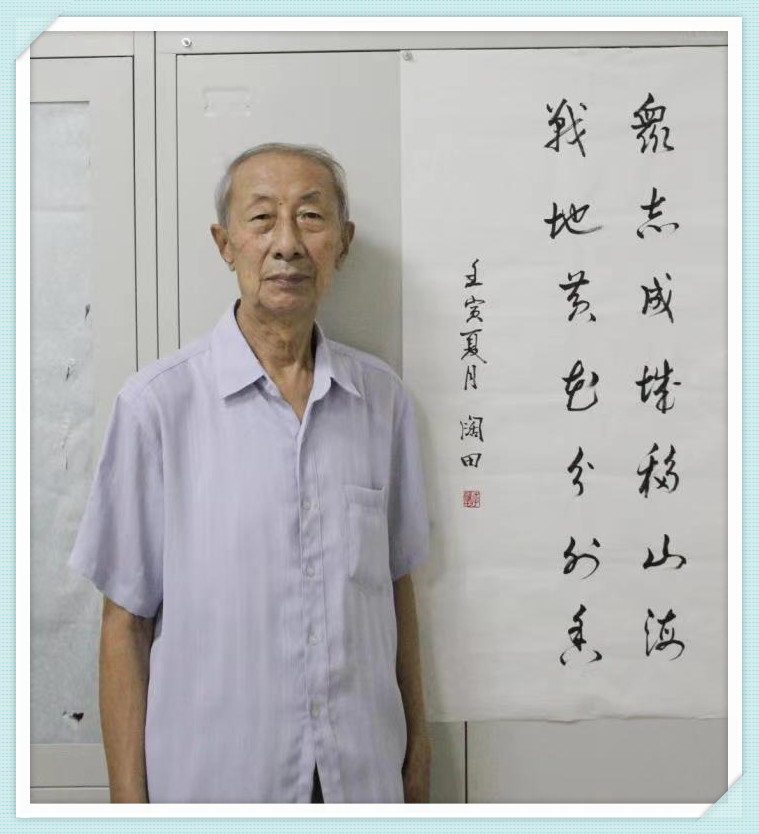 衆志成城移山海
戰地黄花分外香
壬寅夏月 阔田